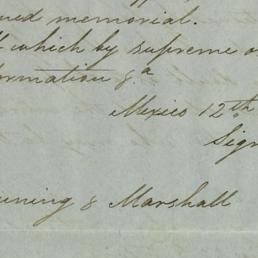 ned memorial.
which by supreme o
ormation &a
Mexico 12th
Sign
uning & Marshall